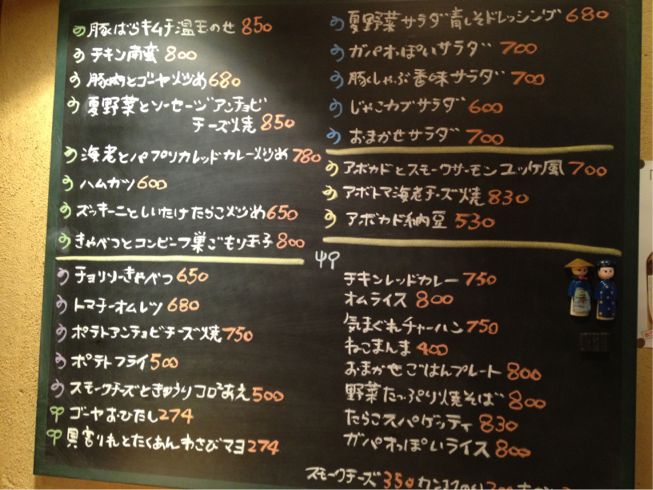 豚ばらキムチ温玉のせ 850
チキン南蛮 800
豚肉とゴーヤ炒め 680
夏野菜とソーセージアンチョビ
チーズ焼 850
海老とパプリカレッドカレー炒め 780
ハムカツ 600
ズッキーニとしいたけたらこ炒め 650
きゃべつとコンビーフ巣ごもり玉子 800
チョリソーきゃべつ 650
トマチーオムレツ 680
ポテトアンチョビチーズ焼 750
ポテトフライ 500
スモークチーズときゅうりコロコロあえ 500
ゴーヤおひたし 274
貝割れとたくあんわさびマヨ 274
夏野菜サラダ青しそドレッシング 680
ガパオっぽいサラダ 700
豚しゃぶ香味サラダ 700
じゃこカブサラダ 600
おまかせサラダ 700
アボカドとスモークサーモンユッケ風 700
アボトマ海老チーズ焼 830
アボカド納豆 530
チキンレッドカレー 750
オムライス 800
気まぐれチャーハン 750
ねこまんま 400
おまかせごはんプレート 800
野菜たっぷり焼そば 800
たらこスパゲッティ 830
ガパオっぽいライス 800
スモークチーズ 350